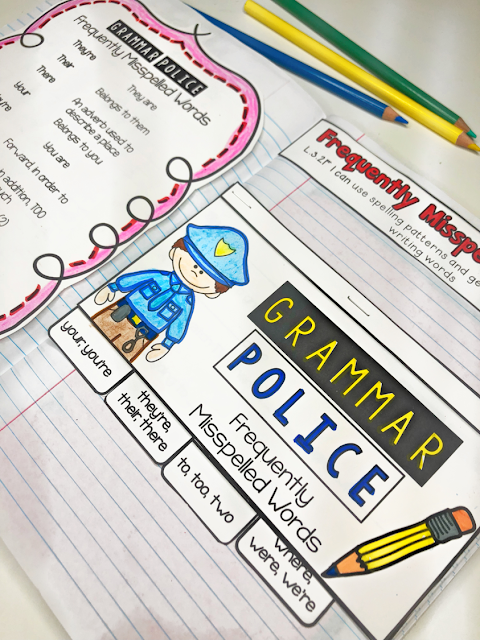 GRAMMAR POLICE
Frequently Misspelled Words
They're
They are
Their
Belongs to them
There
An adverb used to
describe a place
Your
Belongs to you
You are
Forward, in order to
In addition, TOO
(2)
Frequently
L.3.2F I can use spelling patterns and
writing words
GRAMMAR
POLICE
Frequently
Misspelled Words
your, you're
they're,
their, there
to, too, two
where,
were, we're